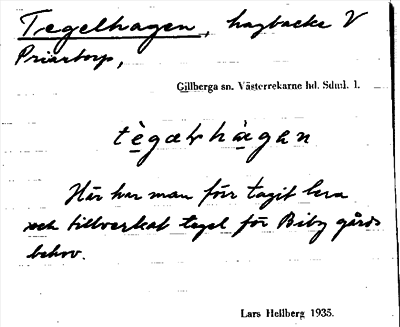 Tegelhagen, hagbacke V
Priartorp,
Gillberga sn. Västerrekarne hd. Sdml. l.
tègæḷhàgan
Här har man förr tagit lera
och tillverkat tegel för Biby gårds
behov.
Lars Hellberg 1935.